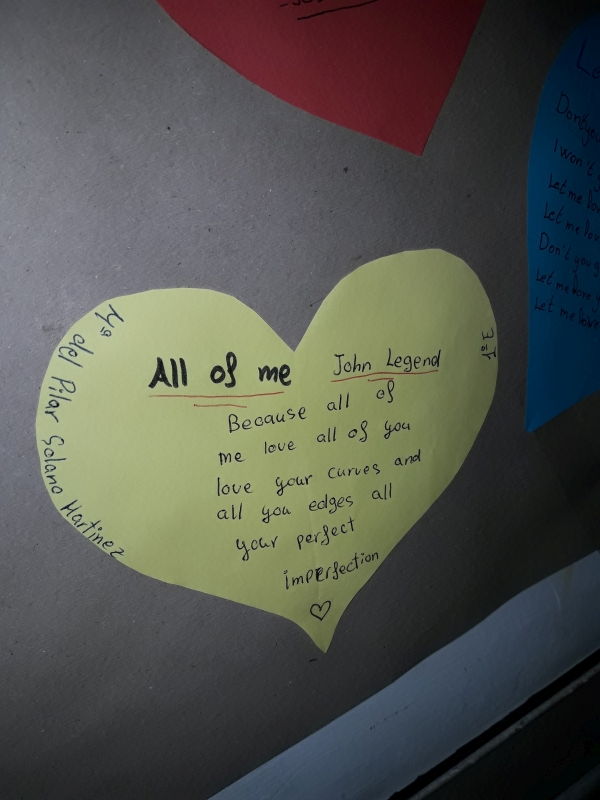 All of me John Legend
Because all of
me love all of you
love your curves and
all you edges all
your perfect
imperfection
Mª del Pilar Solano Martinez
Don't you
I won't
Let me
Let me
Don't you g
Let me love y
Let me love